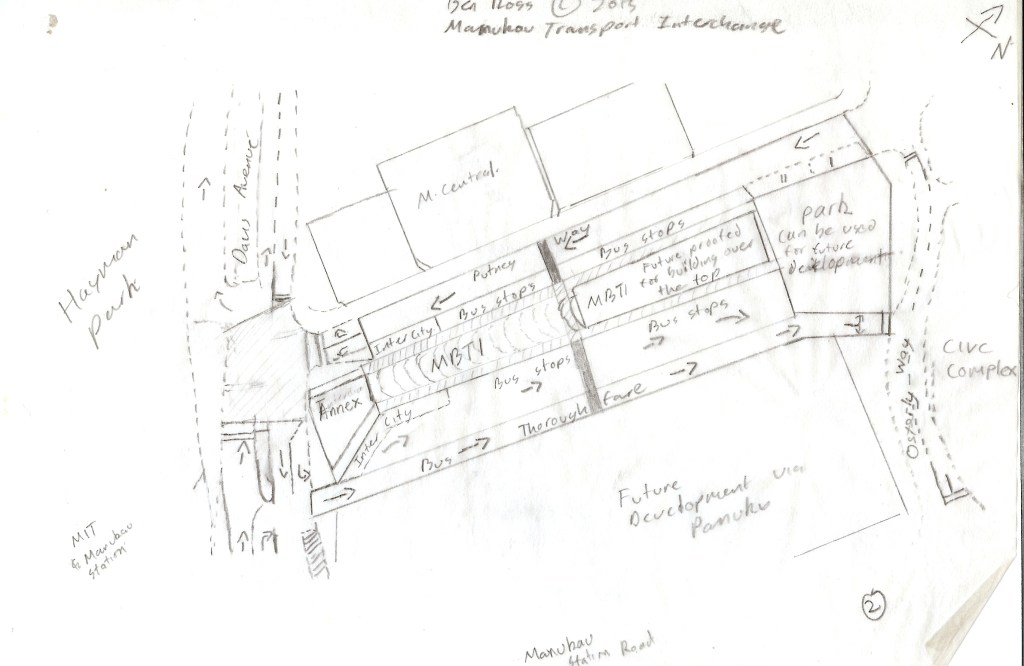 Ben Ross © 2015
Manukau Transport Interchange
N
Hayman
park
Davis Avenue
M. Central.
Putney
way
Bus stops
park
can be used
for future
development
Future proofed
for building over
the top
MBTI
InterCity
Bus stops
MBTI
Bus stops
Bus stops
Annex
InterCity
Bus
Thorough fare
Osterly way
Civc
Complex
Future
Development via
Panuku
MIT
& Manukau
Station
2
Manukau
Station Road